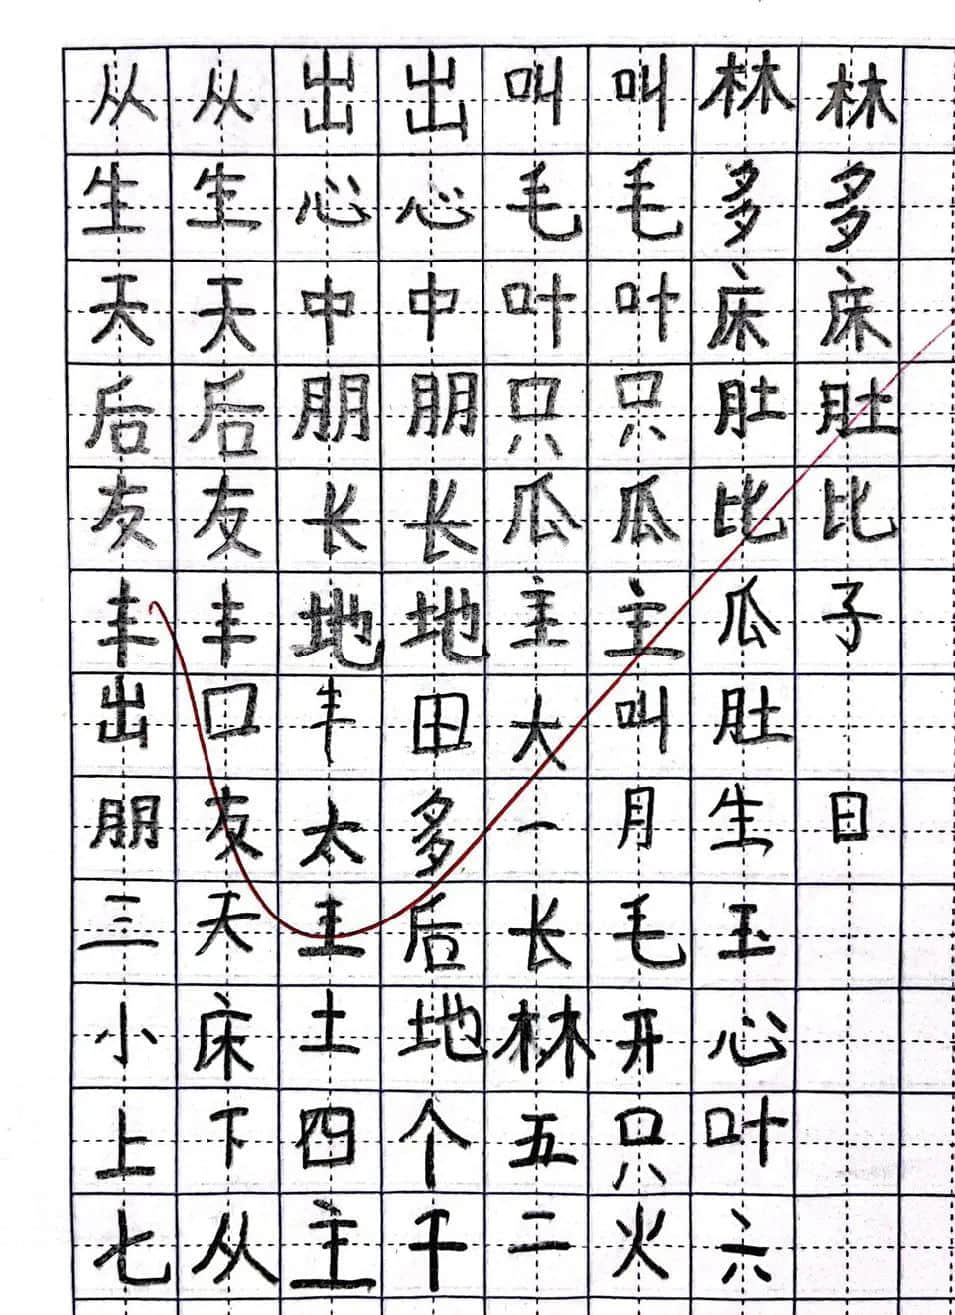 从从出出叫叫林林
生生心心毛毛多多
天天中中叶叶床床
后后朋朋只只肚肚
友友长长瓜瓜比比
丰丰地地主主瓜子
出口丰田大叫肚
朋友太多一月生日
三天主后长毛玉
小床土地林开心
上下四个五只叶
七从主千二火六